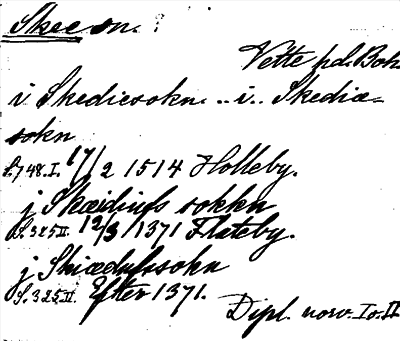 Skee sn.
Vette hd. Boh.
i Skediesokn .. i .. Skediæ-
sokn
S. 748. I. 17/2 1514 Holleby.
j Skæidiufs sokkn
S. 325 II. 12/3 1371 Flateby.
j Skiædufssokn
S. 325 II. Efter 1371.
Dipl. norv. I o. II